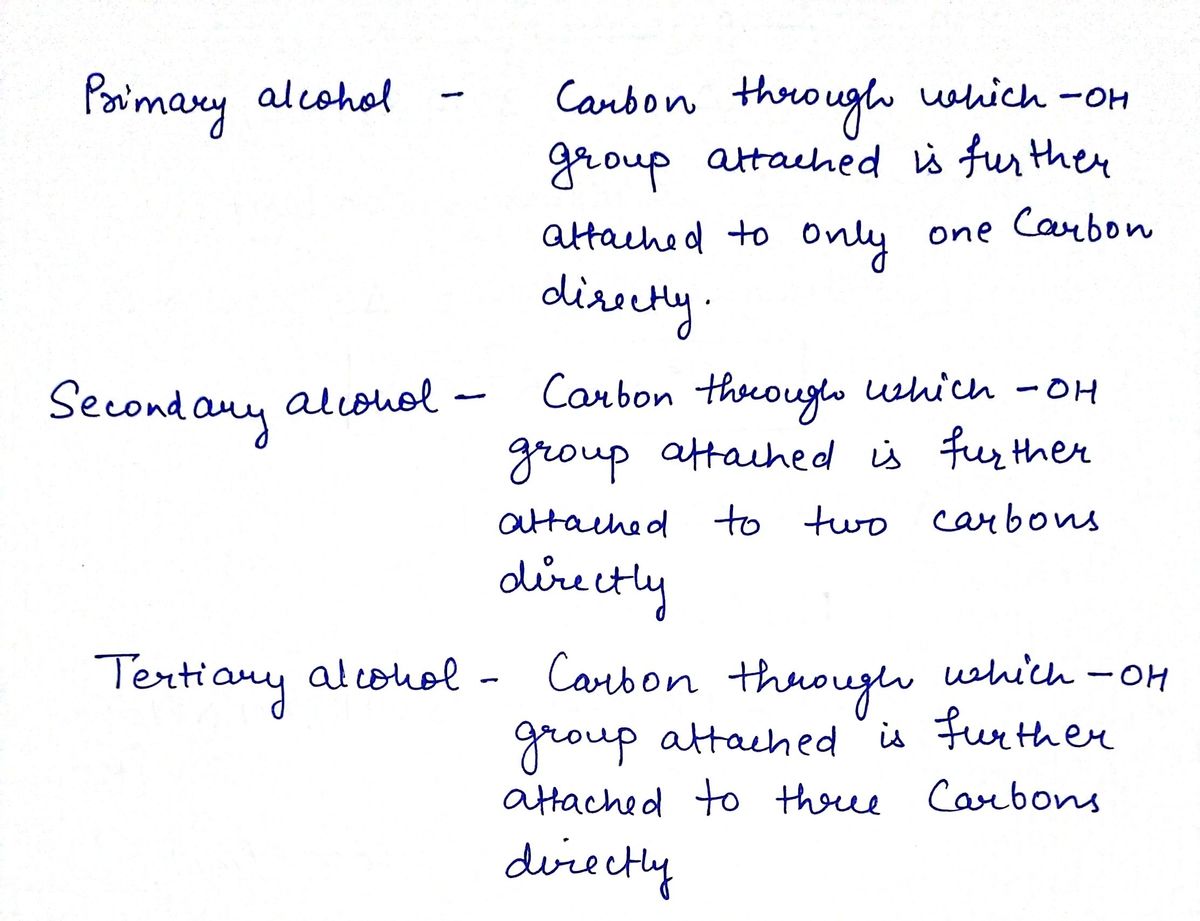 Primary alcohol - Carbon through which -OH
group attached is further
attached to only one Carbon
directly.
Secondary alcohol - Carbon through which -OH
group attached is further
attached to two carbons
directly
Tertiary alcohol - Carbon through which -OH
group attached is further
attached to three Carbons
directly